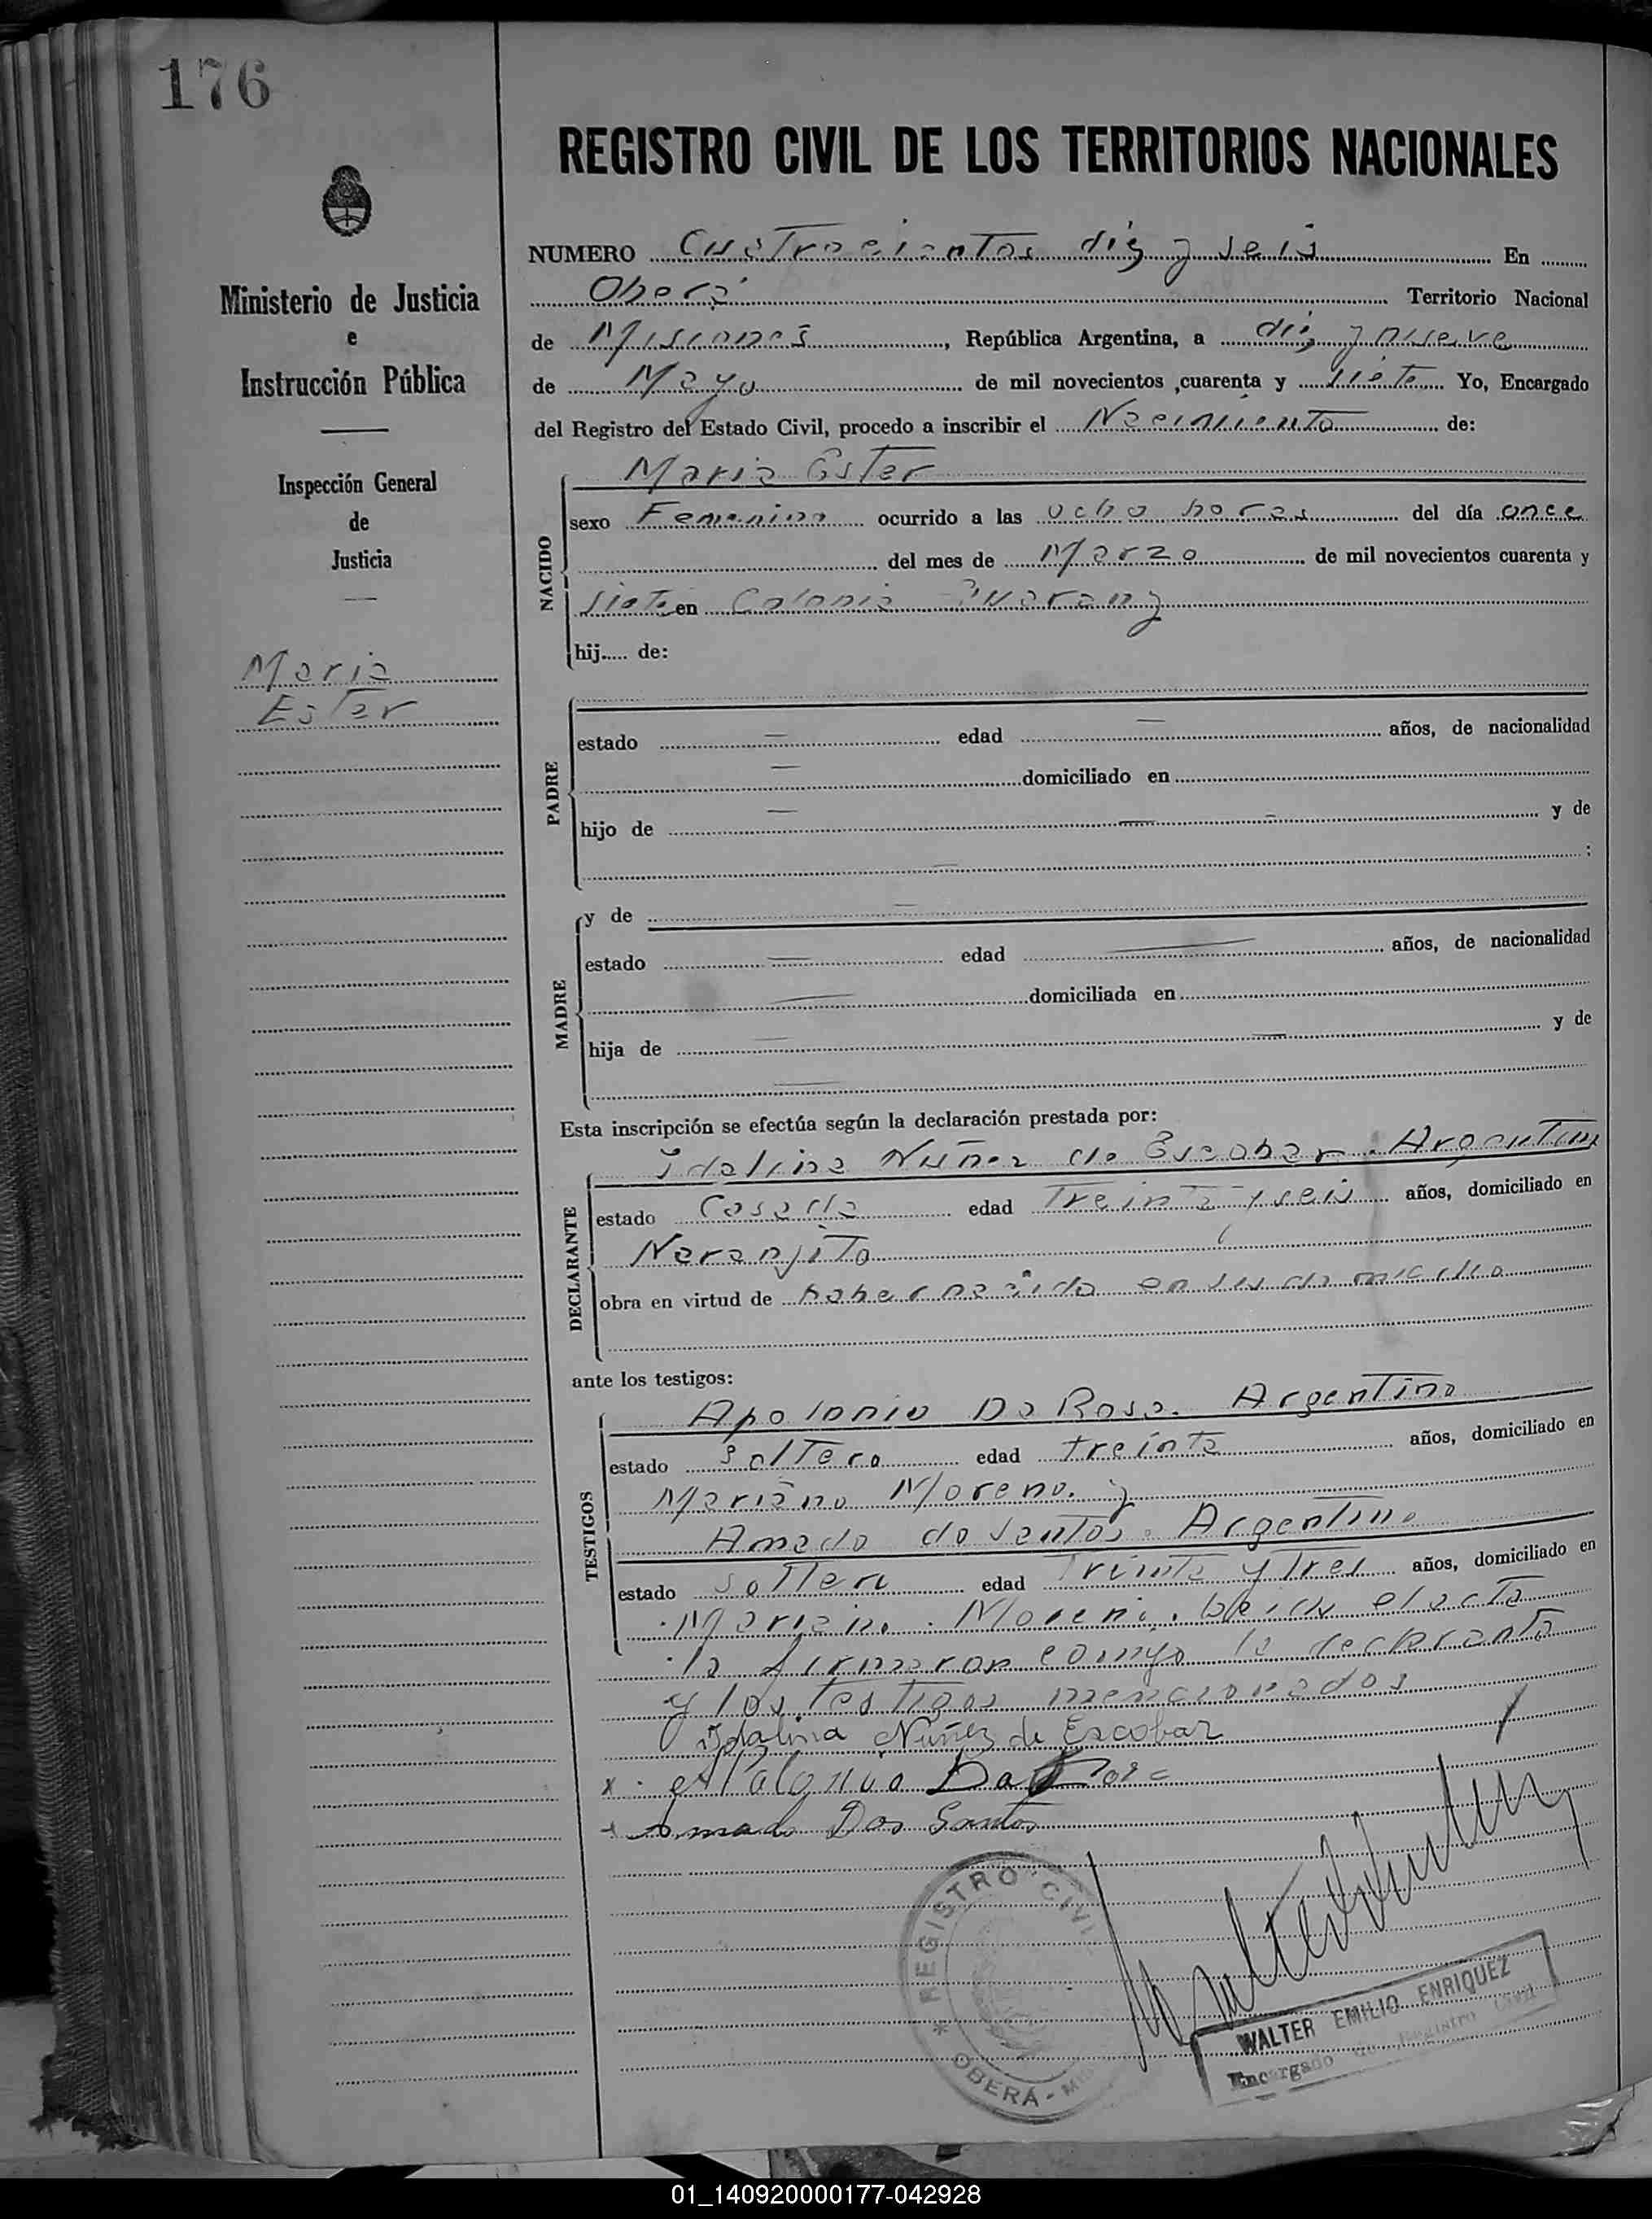 176
REGISTRO CIVIL DE LOS TERRITORIOS NACIONALES
Ministerio de Justicia
e
Instrucción Pública
Inspección General
de
Justicia
Maria
Ester
NUMERO Cuatrocientos diez y seis En
Oberá Territorio Nacional
de Misiones, República Argentina, a diez y nueve
de Mayo de mil novecientos ,cuarenta y siete Yo, Encargado
del Registro del Estado Civil, procedo a inscribir el Nacimiento de:
NACIDO
Maria Ester
sexo Femenino ocurrido a las ocho horas del día once
del mes de Marzo de mil novecientos cuarenta y
siete en Colonia Guarany
hij de:
PADRE
estado — edad — años, de nacionalidad
— domiciliado en
hijo de — y de
— ;
MADRE
y de —
estado — edad — años, de nacionalidad
— domiciliada en
hija de — y de
—
Esta inscripción se efectúa según la declaración prestada por:
DECLARANTE
Idalina Nuñez de Escobar. Argentina
estado Casada edad Treinta y seis años, domiciliado en
Naranjito
obra en virtud de haber nacido en su domicilio
ante los testigos:
TESTIGOS
Apolonio Da Rosa. Argentino
estado Soltero edad treinta años, domiciliado en
Mariano Moreno. y
Amado do Santos. Argentino
estado soltero edad Treinta y Tres años, domiciliado en
Mariano Moreno. Leida el acta
la firmaron conmigo la declarante
y los Testigos mencionados
Idalina Nuñez de Escobar
x Apalonio Da Rosa
+ Amado Dos Santos
* REGISTRO CIVIL
OBERÁ - M
WALTER EMILIO ENRIQUEZ
Encargado de Registro Civil
01_140920000177-042928